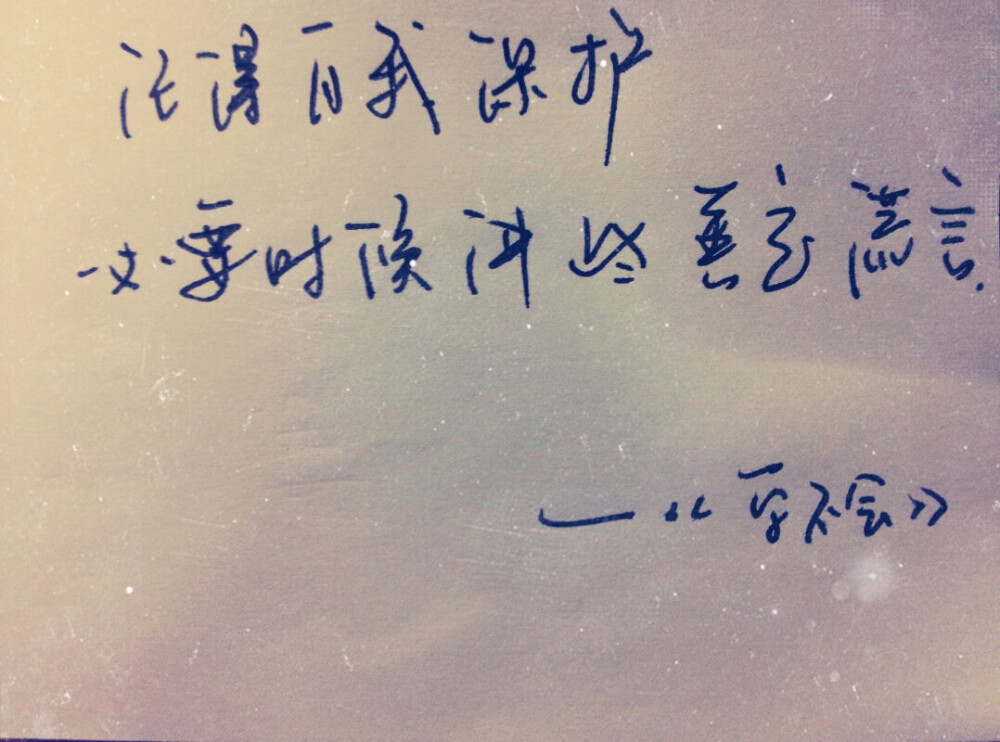 记得自我保护
必要时候讲些善意谎言.
——《学不会》